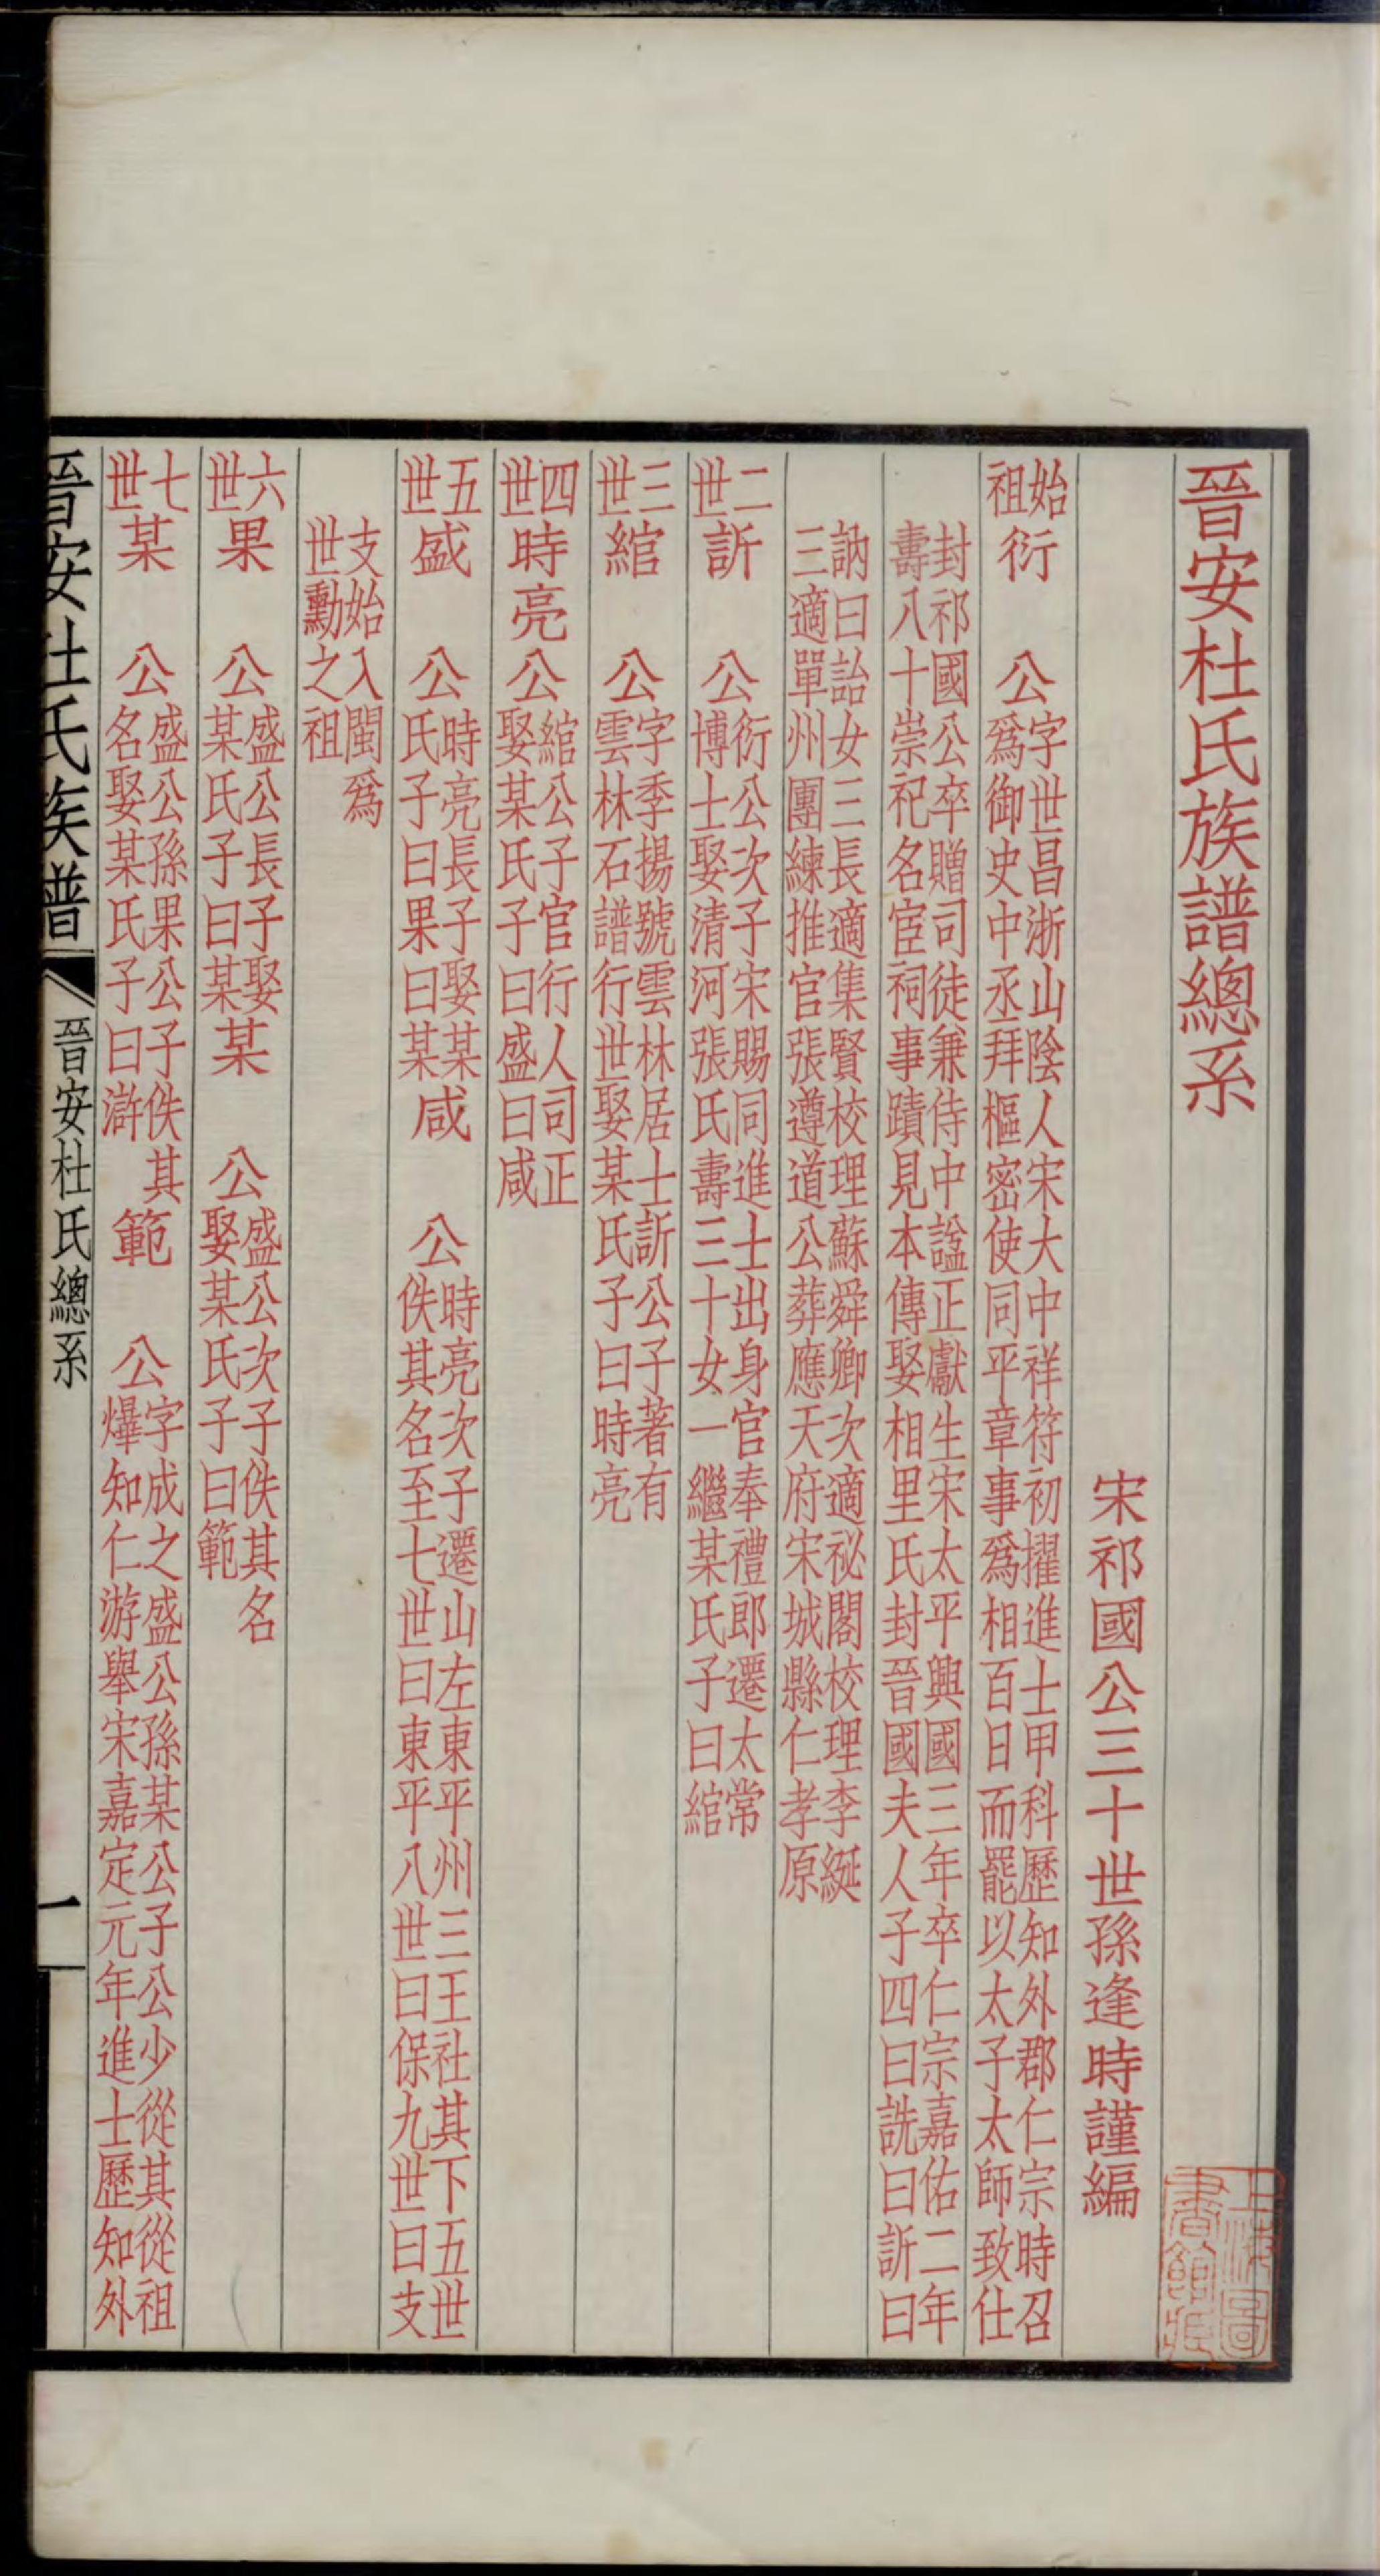 晉安杜氏族譜總系
宋祁國公三十世孫逢時謹編
始祖 衍 公字世昌浙山陰人宋大中祥符初擢進士甲科歷知外郡仁宗時召
爲御史中丞拜樞密使同平章事爲相百日而罷以太子太師致仕
封祁國公卒贈司徒兼侍中諡正獻生宋太平興國三年卒仁宗嘉佑二年
壽八十崇祀名宦祠事蹟見本傳娶相里氏封晉國夫人子四曰詵曰訢曰
訥曰詒女三長適集賢校理蘇舜卿次適祕閣校理李綖
三適單州團練推官張遵道公葬應天府宋城縣仁孝原
二世 訢 公衍公次子宋賜同進士出身官奉禮郎遷太常
博士娶清河張氏壽三十女一繼某氏子曰綰
三世 綰 公字季揚號雲林居士訢公子著有
雲林石譜行世娶某氏子曰時亮
四世 時亮 公綰公子官行人司正
娶某氏子曰盛曰咸
五世 盛 公時亮長子娶某
氏子曰果曰某
咸 公時亮次子遷山左東平州三王社其下五世
佚其名至七世曰東平八世曰保九世曰支
支始入閩爲
世勳之祖
六世 果 公盛公長子娶
某氏子曰某
某 公盛公次子佚其名
娶某氏子曰範
七世 某 公盛公孫果公子佚其
名娶某氏子曰滸
範 公字成之盛公孫某公子公少從其從祖
爗知仁游舉宋嘉定元年進士歷知外
晉安杜氏族譜
晉安杜氏總系
一
上海圖書館藏